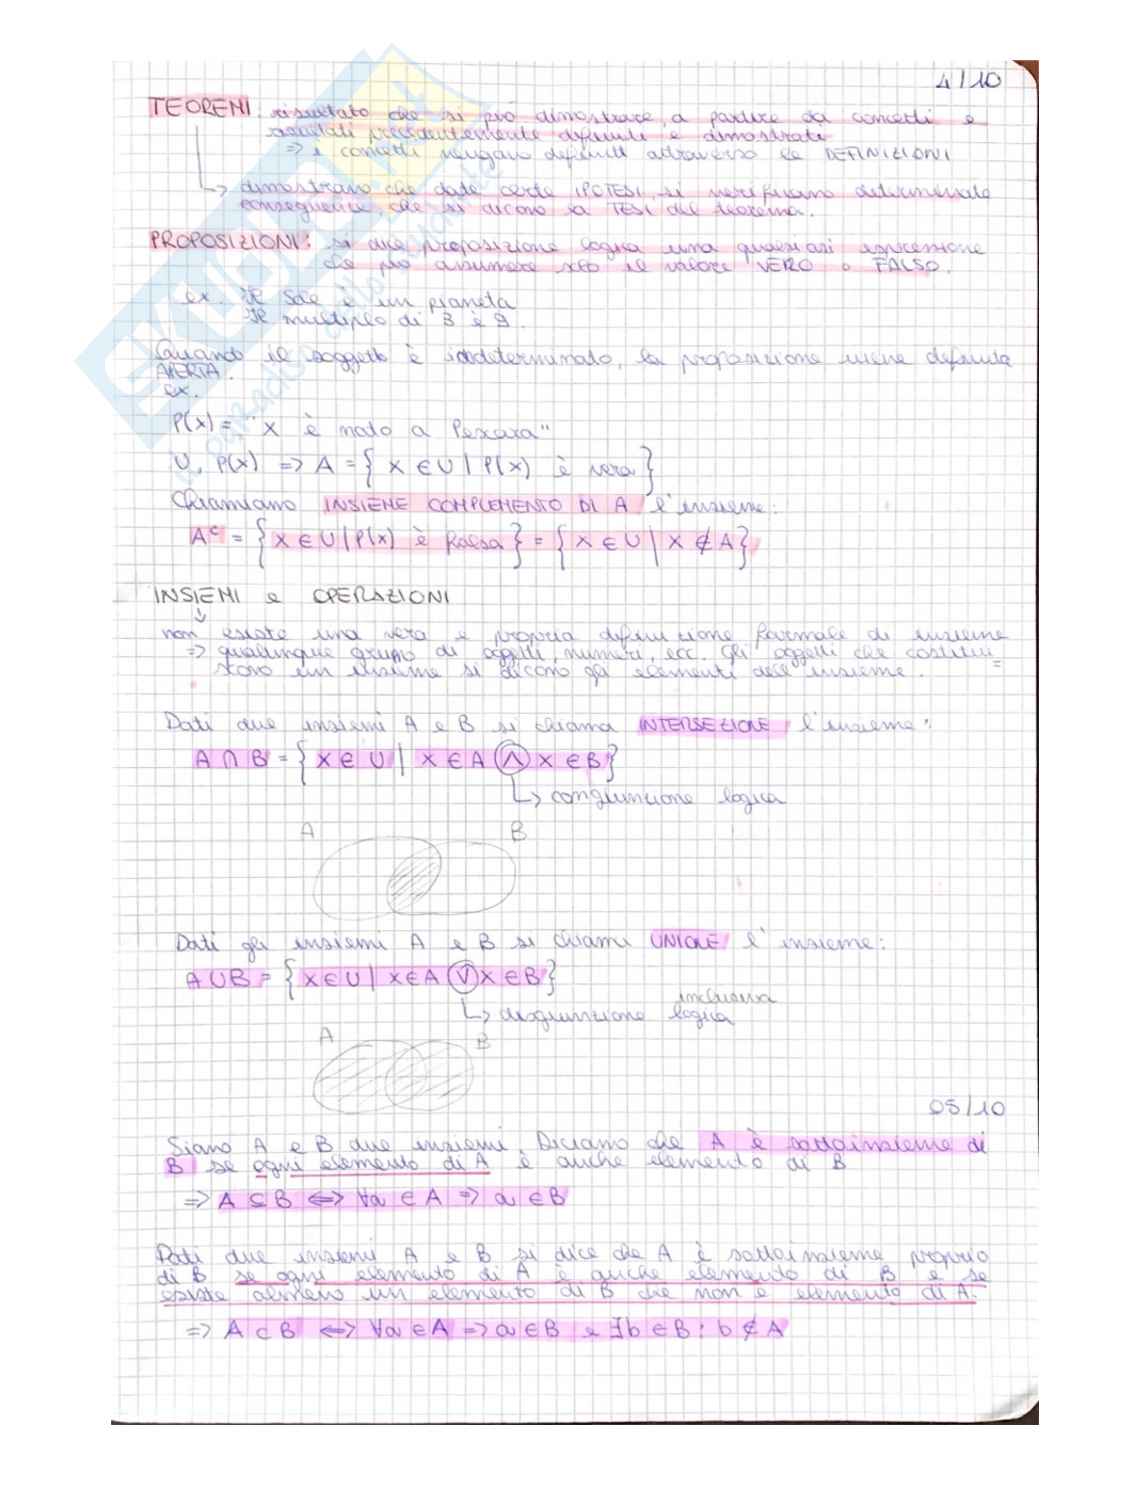 4/10
TEOREMI: risultato che si può dimostrare a partire da concetti e
risultati precedentemente definiti e dimostrati
=> i concetti vengano definiti attraverso le DEFINIZIONI
↳ dimostrano che date certe IPOTESI, si verificano determinate
conseguenze che si dicono la TESI del teorema.
PROPOSIZIONI: si dice proposizione logica una qualsiasi espressione
che può assumere solo il valore VERO o FALSO.
ex. Il Sole è un pianeta
Il multiplo di 3 è 9.
Quando il soggetto è indeterminato, la proposizione viene definita
APERTA.
ex.
P(x) = "x è nato a Pescara"
U, P(x) => A = { x ∈ U | P(x) è vera }
Chiamiamo INSIEME COMPLEMENTO DI A l'insieme:
Aᶜ = { x ∈ U | P(x) è falsa } = { x ∈ U | x ∉ A }
INSIEMI e OPERAZIONI
↓
non esiste una vera e propria definizione formale di insieme
=> qualunque gruppo di oggetti, numeri, ecc. gli oggetti che costitui=
scono un insieme si dicono gli elementi dell'insieme.
Dati due insiemi A e B si chiama INTERSEZIONE l'insieme:
A ∩ B = { x ∈ U | x ∈ A ∧ x ∈ B }
↳ congiunzione logica
A B
Dati gli insiemi A e B si chiami UNIONE l'insieme:
A ∪ B = { x ∈ U | x ∈ A ∨ x ∈ B }
inclusiva
↳ disgiunzione logica
A B
05/10
Siano A e B due insiemi. Diciamo che A è sottoinsieme di
B se ogni elemento di A è anche elemento di B
=> A ⊆ B <=> ∀a ∈ A => a ∈ B
Dati due insiemi A e B si dice che A è sottoinsieme proprio
di B se ogni elemento di A è anche elemento di B e se
esiste almeno un elemento di B che non è elemento di A.
=> A ⊂ B <=> ∀a ∈ A => a ∈ B e ∃b ∈ B : b ∉ A